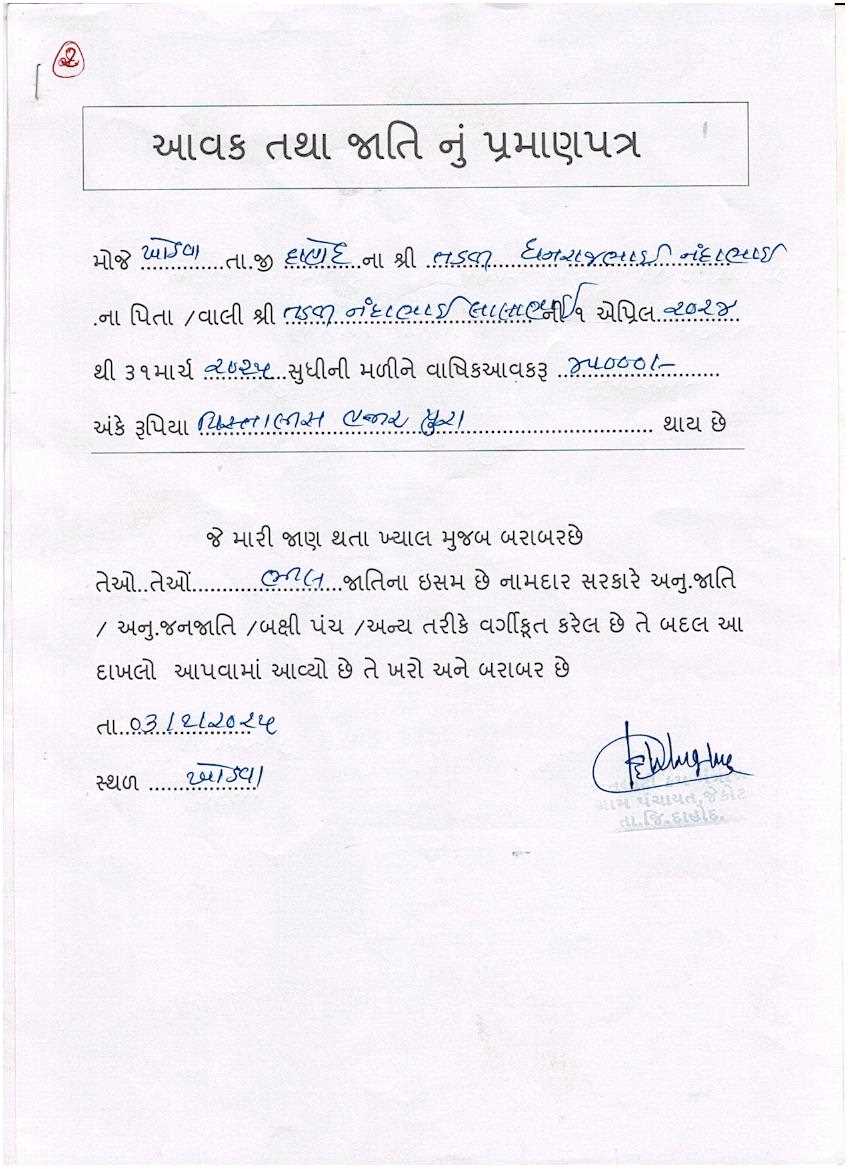 ૨
આવક તથા જાતિ નું પ્રમાણપત્ર
મોજે ખારેવા તા.જી દાહોદ ના શ્રી તડવી ધનરાજભાઈ નંદાભાઈ
.ના પિતા /વાલી શ્રી તડવી નંદાભાઈ લાલાભાઈ ની ૧ એપ્રિલ ૨૦૨૪
થી ૩૧માર્ચ ૨૦૨૫ સુધીની મળીને વાષિકઆવકરૂ ૪૫૦૦૦/-
અંકે રૂપિયા પિસ્તાલીસ હજાર પુરા થાય છે
જે મારી જાણ થતા ખ્યાલ મુજબ બરાબરછે
તેઓ..તેઓં ભીલ જાતિના ઇસમ છે નામદાર સરકારે અનુ.જાતિ
/ અનુ.જનજાતિ /બક્ષી પંચ /અન્ય તરીકે વર્ગીકૃત કરેલ છે તે બદલ આ
દાખલો આપવામાં આવ્યો છે તે ખરો અને બરાબર છે
તા..૦૩/૨/૨૦૨૫
સ્થળ
ગ્રામ પંચાયત,જેકોટ
તા.જિ.દાહોદ.